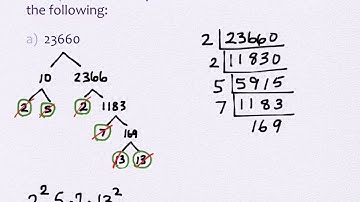 the following:
a) 23660
10 2366
2 5 2 1183
7 169
13 13
2² 5 · 7 · 13²
2 23660
2 11830
5 5915
7 1183
169